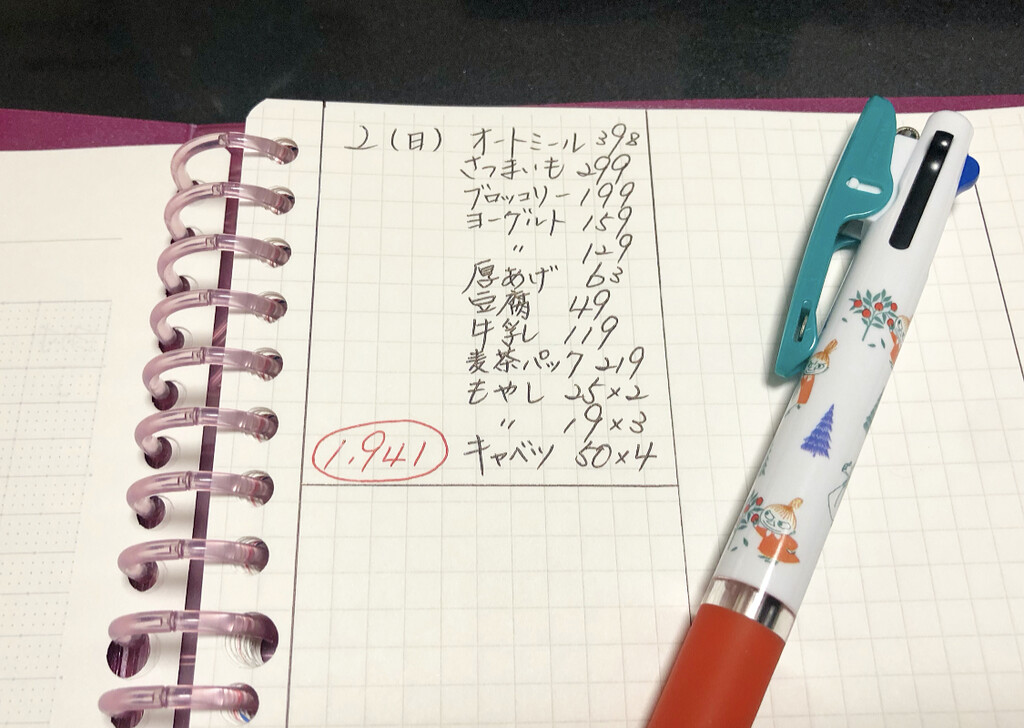 2(日) オートミール 398
さつまいも 299
ブロッコリー 199
ヨーグルト 159
〃 129
厚あげ 63
豆腐 49
牛乳 119
麦茶パック 219
もやし 25×2
〃 19×3
1,941 キャベツ 50×4